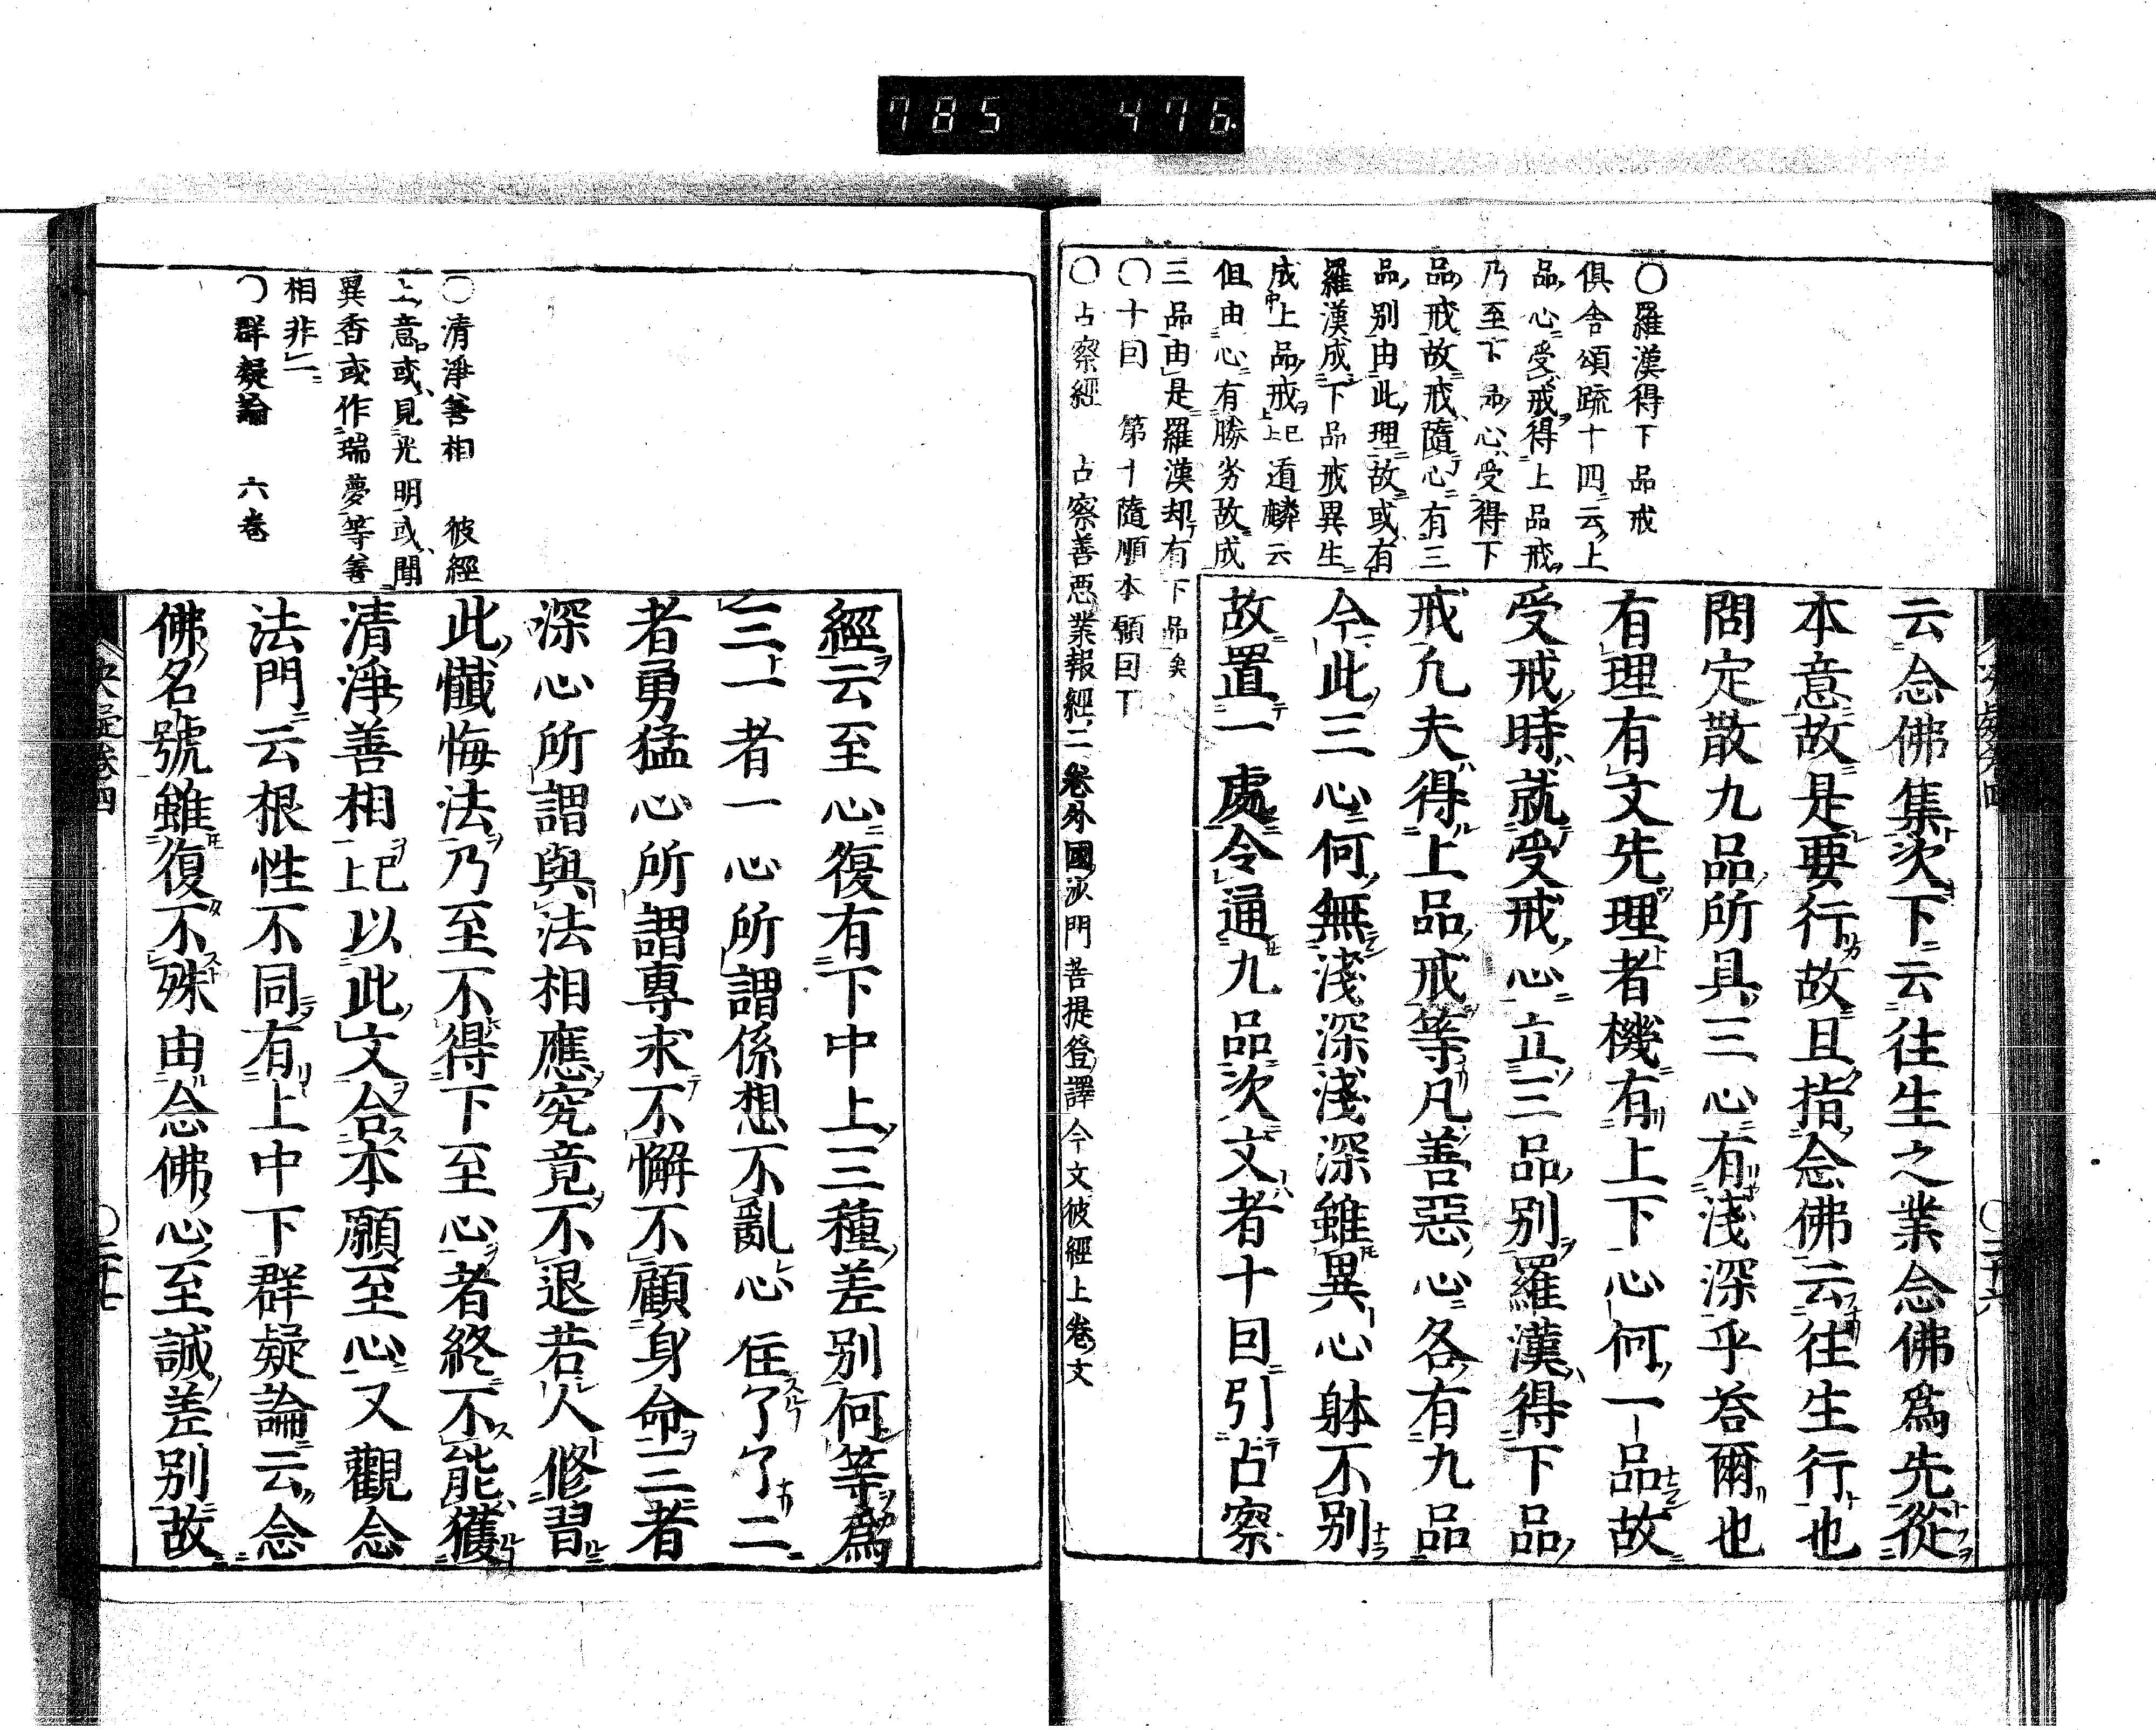 785 476
○羅漢得下品戒
俱舍頌疏十四云上
品心受戒得上品戒
乃至下品心受得下
品戒故戒隨心有三
品別由此理故或有
羅漢成下品戒異生
成上品戒已上遁麟云
但由心有勝劣故成
三品由是羅漢却有下品矣
○十回 第十隨順本願回下
○占察經 占察善惡業報經二卷外國沙門菩提登譯今文彼經上卷文
云念佛集次下云往生之業念佛爲先從
本意故是要行故且指念佛云往生行也
問定散九品所具三心有淺深乎荅爾也
有理有文先理者機有上下心何一品故
受戒時就受戒心立三品別羅漢得下品
戒凢夫得上品戒等凡善惡心各有九品
今此三心何無淺深淺深雖異心躰不別
故置一處令通九品次文者十回引占察
○清淨善相 彼經
上意或見光明或聞
異香或作瑞夢等善
相非一
○群疑論 六卷
經云至心復有下中上三種差別何等爲
三一者一心所謂係想不亂心住了了二
者勇猛心所謂專求不懈不顧身命三者
深心所謂與法相應究竟不退若人修習
此懺悔法乃至不得下至心者終不能獲
清淨善相已上以此文合本願至心又觀念
法門云根性不同有上中下群疑論云念
佛名號雖復不殊由念佛心至誠差別故
决疑卷四
○二十七